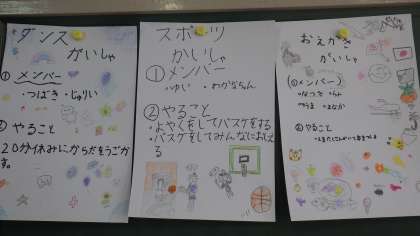 ダンス
がいしゃ
① メンバー
・つばき・じゅりい
② やること
20分休みにからだをうごか
す。
スポーツ
かいしゃ
①メンバー
・ゆい ・わかなちゃん
②やること
・よやくをしてバスケをする
・バスケをしてみんなにおしえ
る
おえかき
がいしゃ
①メンバー
②やること